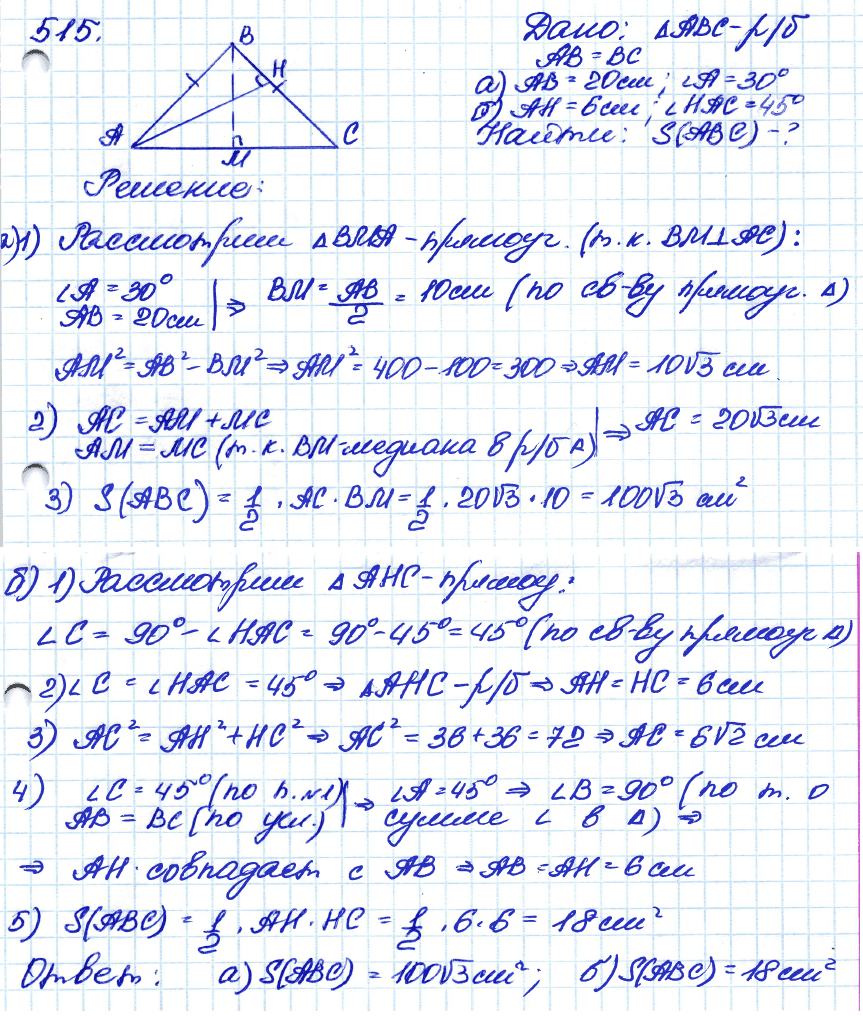 515.
B
H
A
M
C
Дано: △ABC-р/б
AB = BC
а) AB = 20 см; ∠A = 30°
б) AH = 6 см; ∠HAC = 45°
Найти: S(ABC) - ?
Решение:
а) 1) Рассмотрим △BMA - прямоуг. (т.к. BM⊥AC):
∠A = 30°
AB = 20 см | ⇒ BM = AB/2 = 10 см (по св-ву прямоуг. △)
AM² = AB² - BM² ⇒ AM² = 400 - 100 = 300 ⇒ AM = 10√3 см
2) AC = AM + MC
AM = MC (т.к. BM-медиана в р/б △) | ⇒ AC = 20√3 см
3) S(ABC) = 1/2 · AC · BM = 1/2 · 20√3 · 10 = 100√3 см²
б) 1) Рассмотрим △AHC - прямоу:
∠C = 90° - ∠HAC = 90° - 45° = 45° (по св-ву прямоуг △)
2) ∠C = ∠HAC = 45° ⇒ △AHC - р/б ⇒ AH = HC = 6 см
3) AC² = AH² + HC² ⇒ AC² = 36 + 36 = 72 ⇒ AC = 6√2 см
4) ∠C = 45° (по п.№1) | ⇒ ∠A = 45° ⇒ ∠B = 90° (по т. о
AB = BC (по усл.) | сумме ∠ в △) ⇒
⇒ AH совпадает с AB ⇒ AB = AH = 6 см
5) S(ABC) = 1/2 · AH · HC = 1/2 · 6 · 6 = 18 см²
Ответ: а) S(ABC) = 100√3 см²; б) S(ABC) = 18 см²